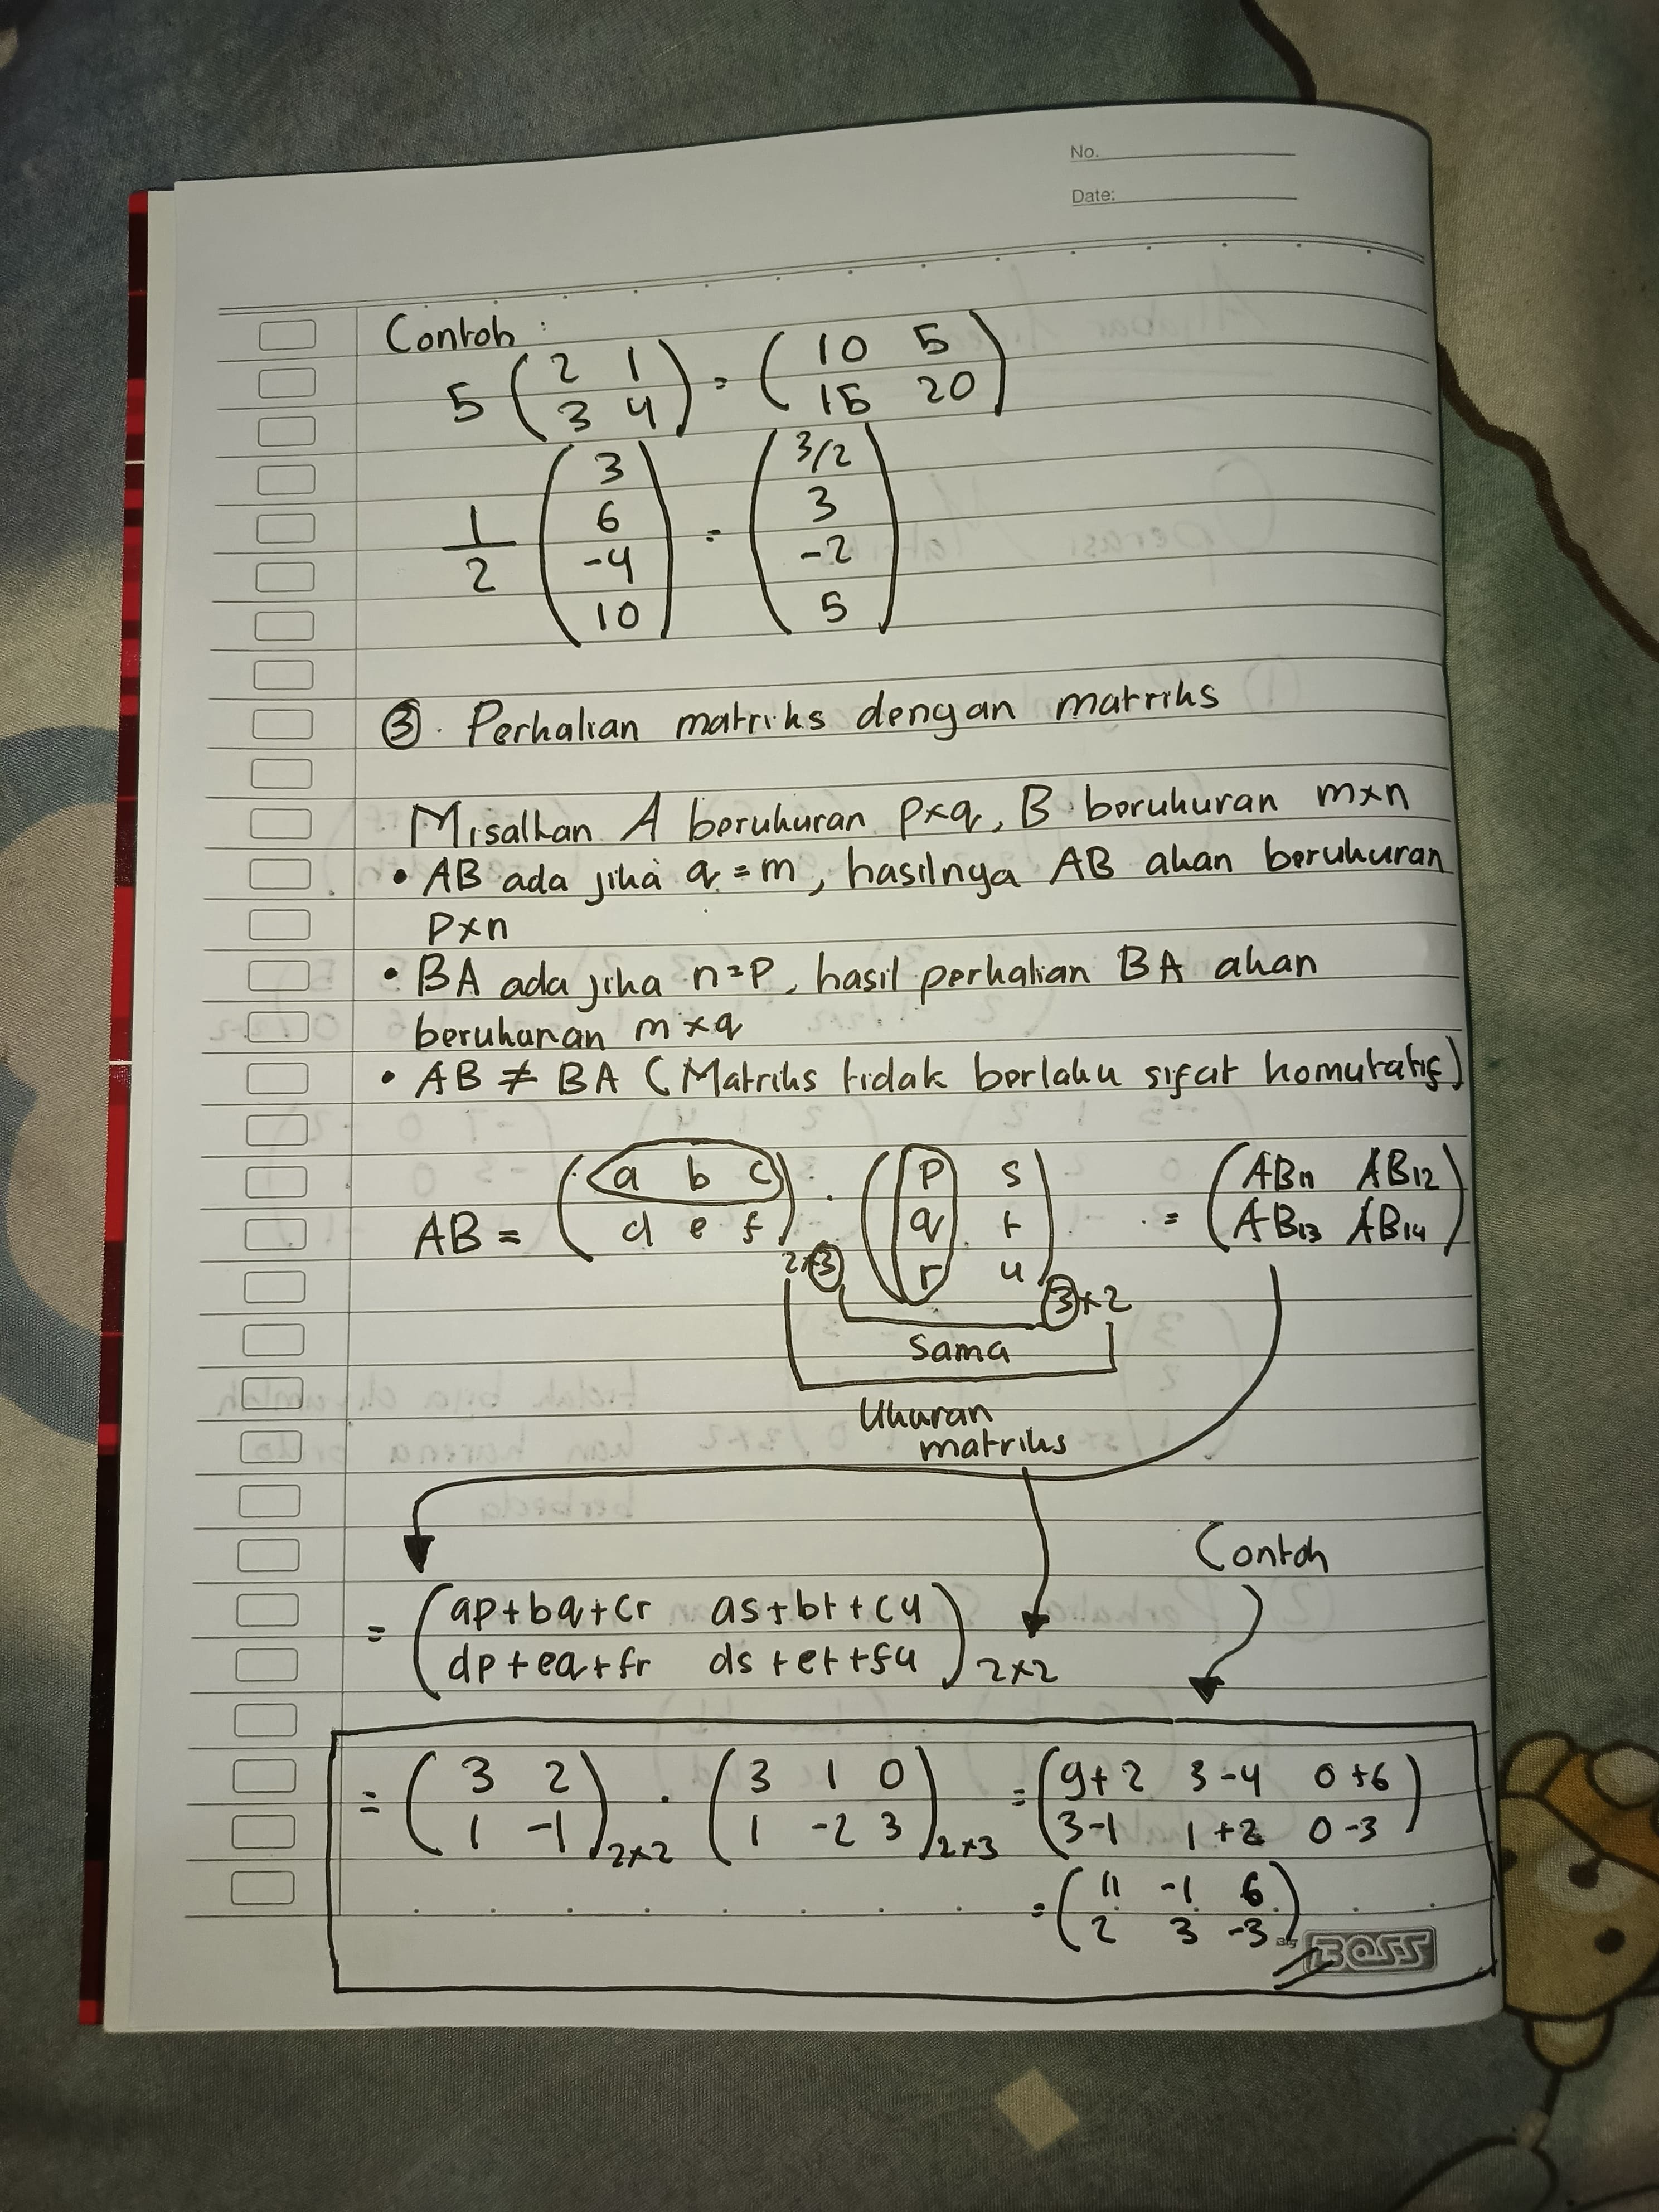 No.
Date:
Contoh :
5 ( 2 1 ) = ( 10 5 )
( 3 4 ) ( 15 20 )
1/2 ( 3 ) = ( 3/2 )
( 6 ) ( 3 )
( -4 ) ( -2 )
( 10 ) ( 5 )
③. Perkalian matriks dengan matriks
Misalkan A berukuran p×q, B berukuran m×n
• AB ada jika q = m, hasilnya AB akan berukuran
p×n
• BA ada jika n=p, hasil perkalian BA akan
berukuran m×q
• AB ≠ BA (Matriks tidak berlaku sifat komutatif)
AB = ( a b c ) . ( p s ) = ( AB11 AB12 )
( d e f ) 2×3 ( q t ) ( AB13 AB14 )
( r u ) 3×2
Sama
Ukuran
matriks
Contoh
= ( ap+bq+cr as+bt+cu )
( dp+eq+fr ds+et+fu ) 2×2
= ( 3 2 ) . ( 3 1 0 ) = ( 9+2 3-4 0+6 )
( 1 -1 ) 2×2 ( 1 -2 3 ) 2×3 ( 3-1 1+2 0-3 )
= ( 11 -1 6 )
( 2 3 -3 )
Big BOSS